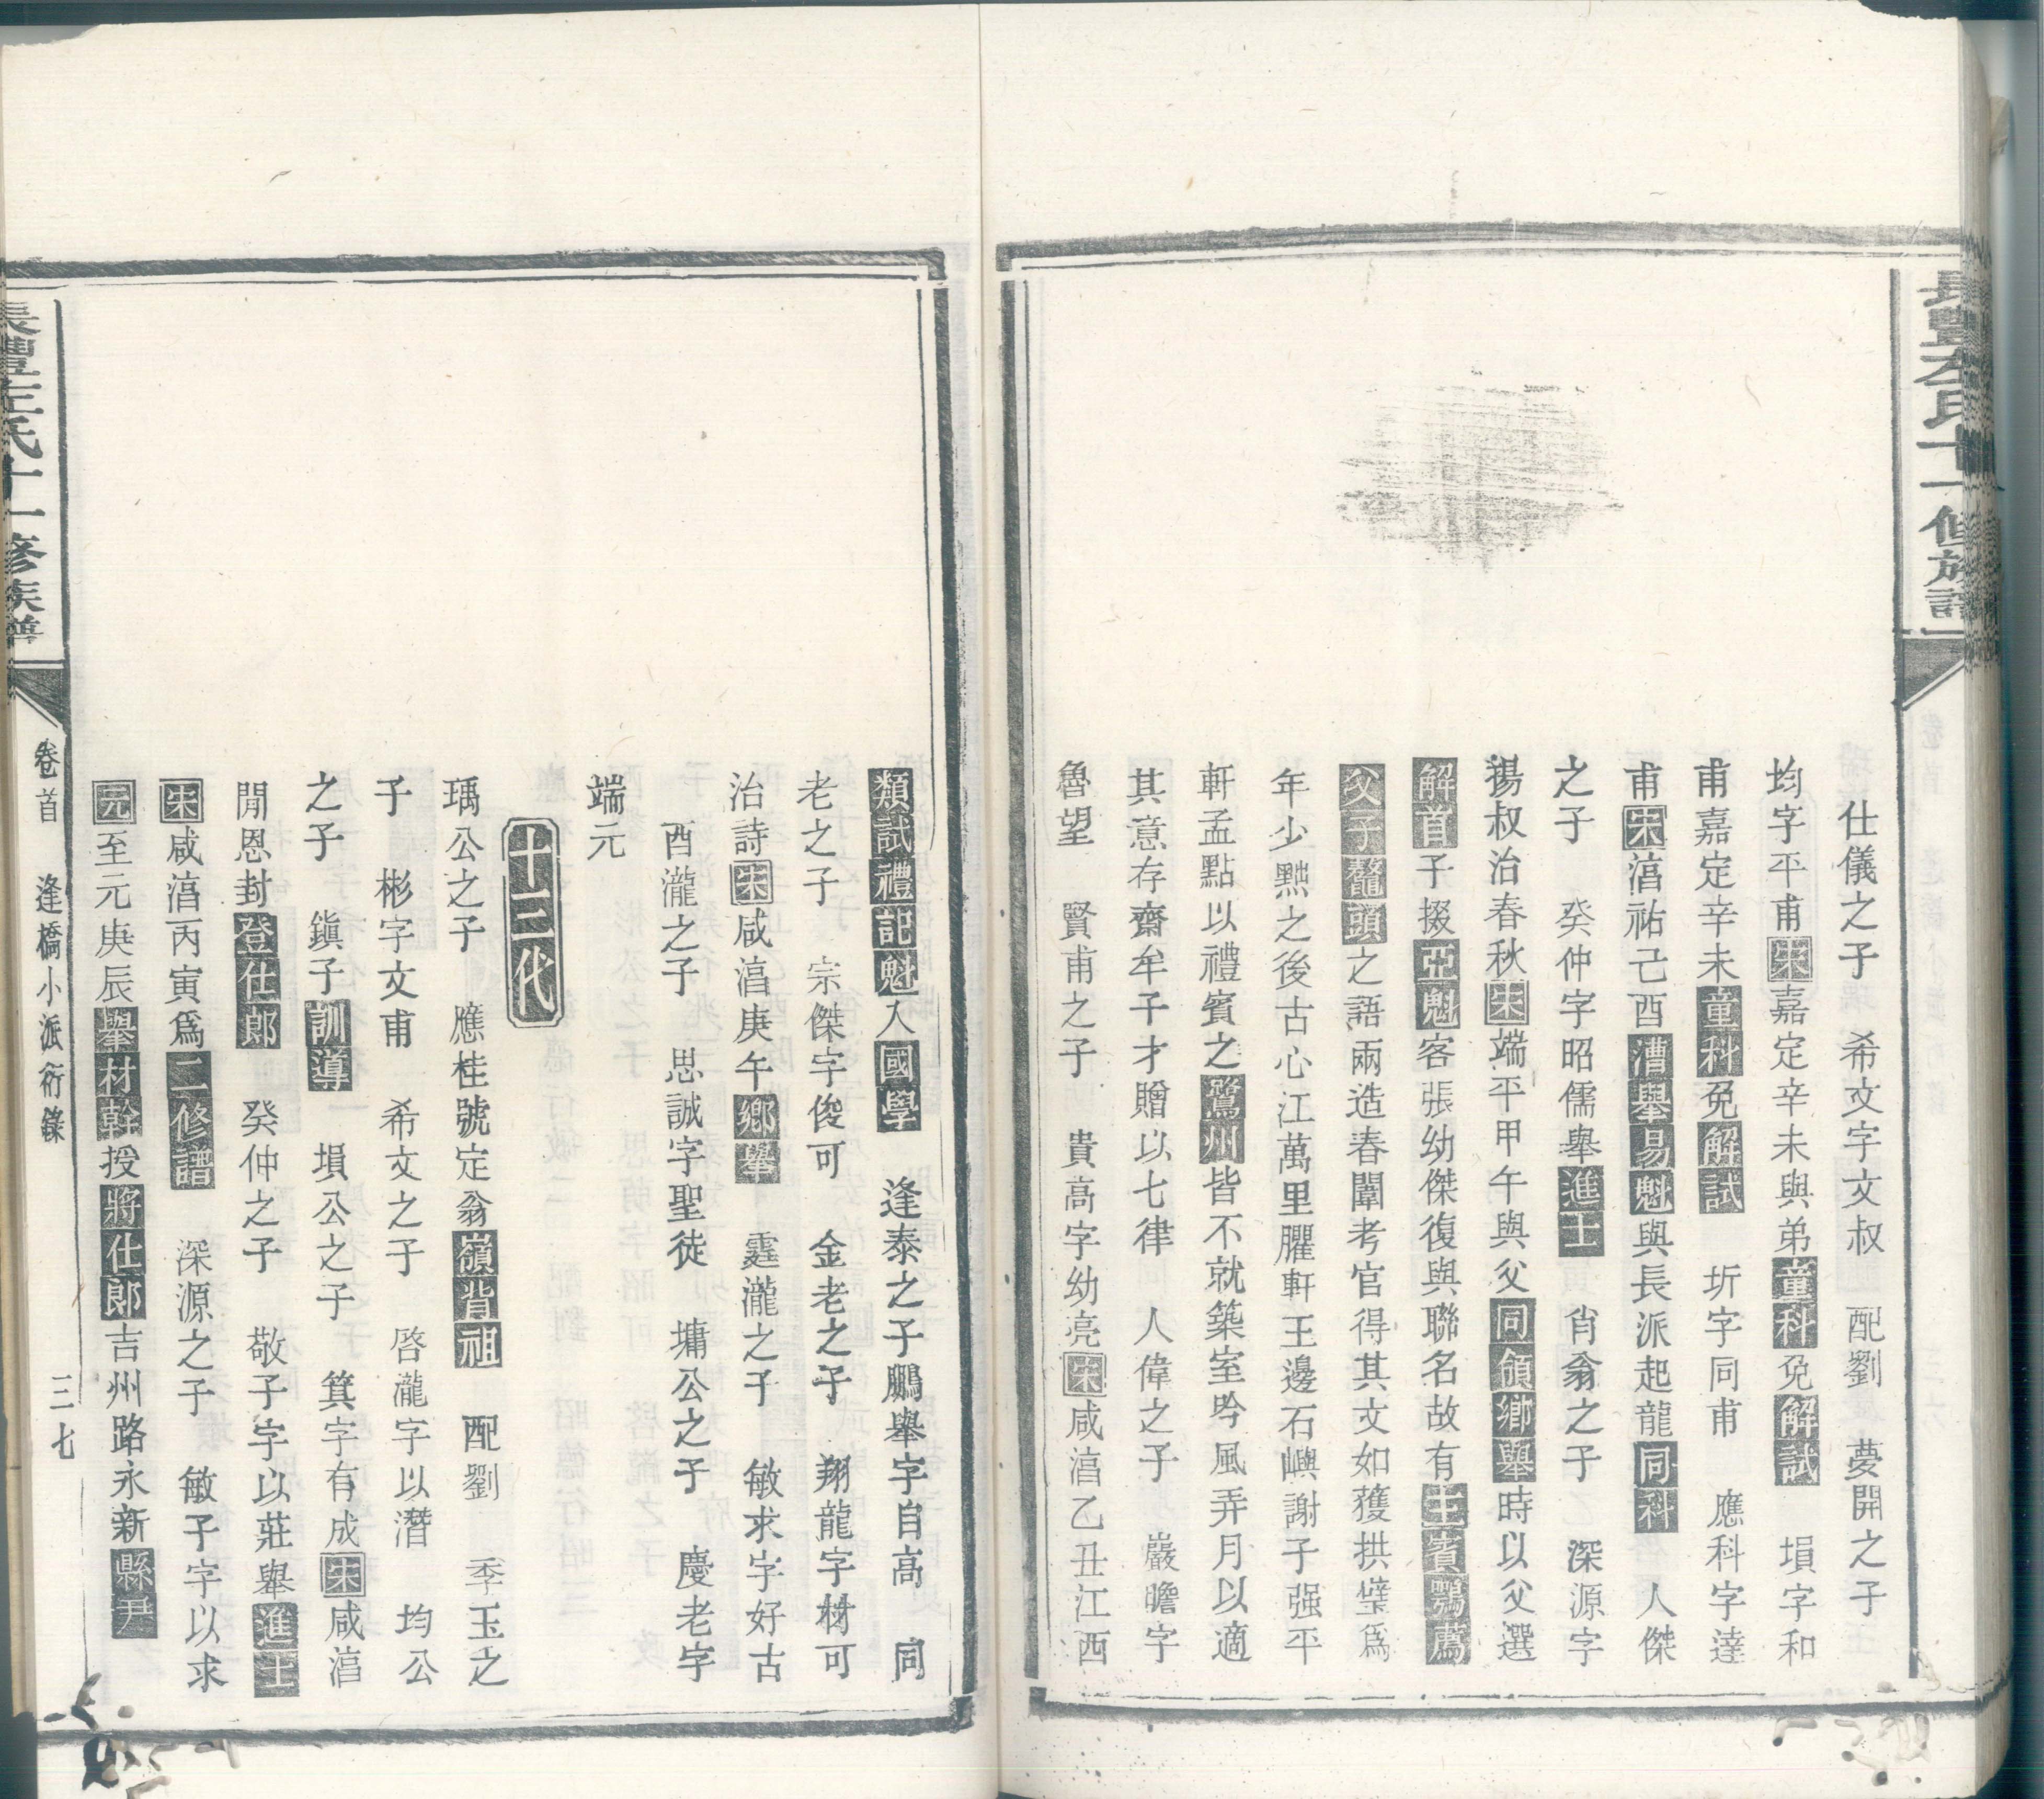 長豐左氏十一修族譜
仕儀之子　希文字文叔　配劉　夢開之子
均字平甫宋嘉定辛未與弟童科免解試　塤字和
甫嘉定辛未童科免解試　圻字同甫　應科字達
甫宋淳祐己酉漕舉易魁與長派起龍同科　人傑
之子　癸仲字昭儒舉進士　肖翁之子　深源字
揚叔治春秋宋端平甲午與父同領鄉舉時以父選
解首子掇亞魁客張幼傑復與聯名故有主賓鶚薦
父子鼇頭之語兩造春闈考官得其文如獲拱璧爲
年少黜之後古心江萬里臞軒王邁石嶼謝子强平
軒孟點以禮賓之鷺州皆不就築室吟風弄月以適
其意存齋牟子才贈以七律　人偉之子　巖瞻字
魯望　賢甫之子　貴高字幼亮宋咸淳乙丑江西
類試禮記魁入國學　逢泰之子鵬舉字自高　同
老之子　宗傑字俊可　金老之子　翔龍字材可
治詩宋咸淳庚午鄉舉　霆瀧之子　敏求字好古
酉瀧之子　思誠字聖徒　墉公之子　慶老字
端元
十三代
瑀公之子　應桂號定翁嶺背祖　配劉　季玉之
子　彬字文甫　希文之子　啓瀧字以潛　均公
之子　鎮子訓導　塤公之子　箕字有成宋咸淳
閒恩封登仕郎　癸仲之子　敬子字以莊舉進士
宋咸淳丙寅爲二修譜　深源之子　敏子字以求
元至元庚辰舉材幹授將仕郎吉州路永新縣尹
長豐左氏十一修族譜
卷首　逢橋小派衍錄　三七